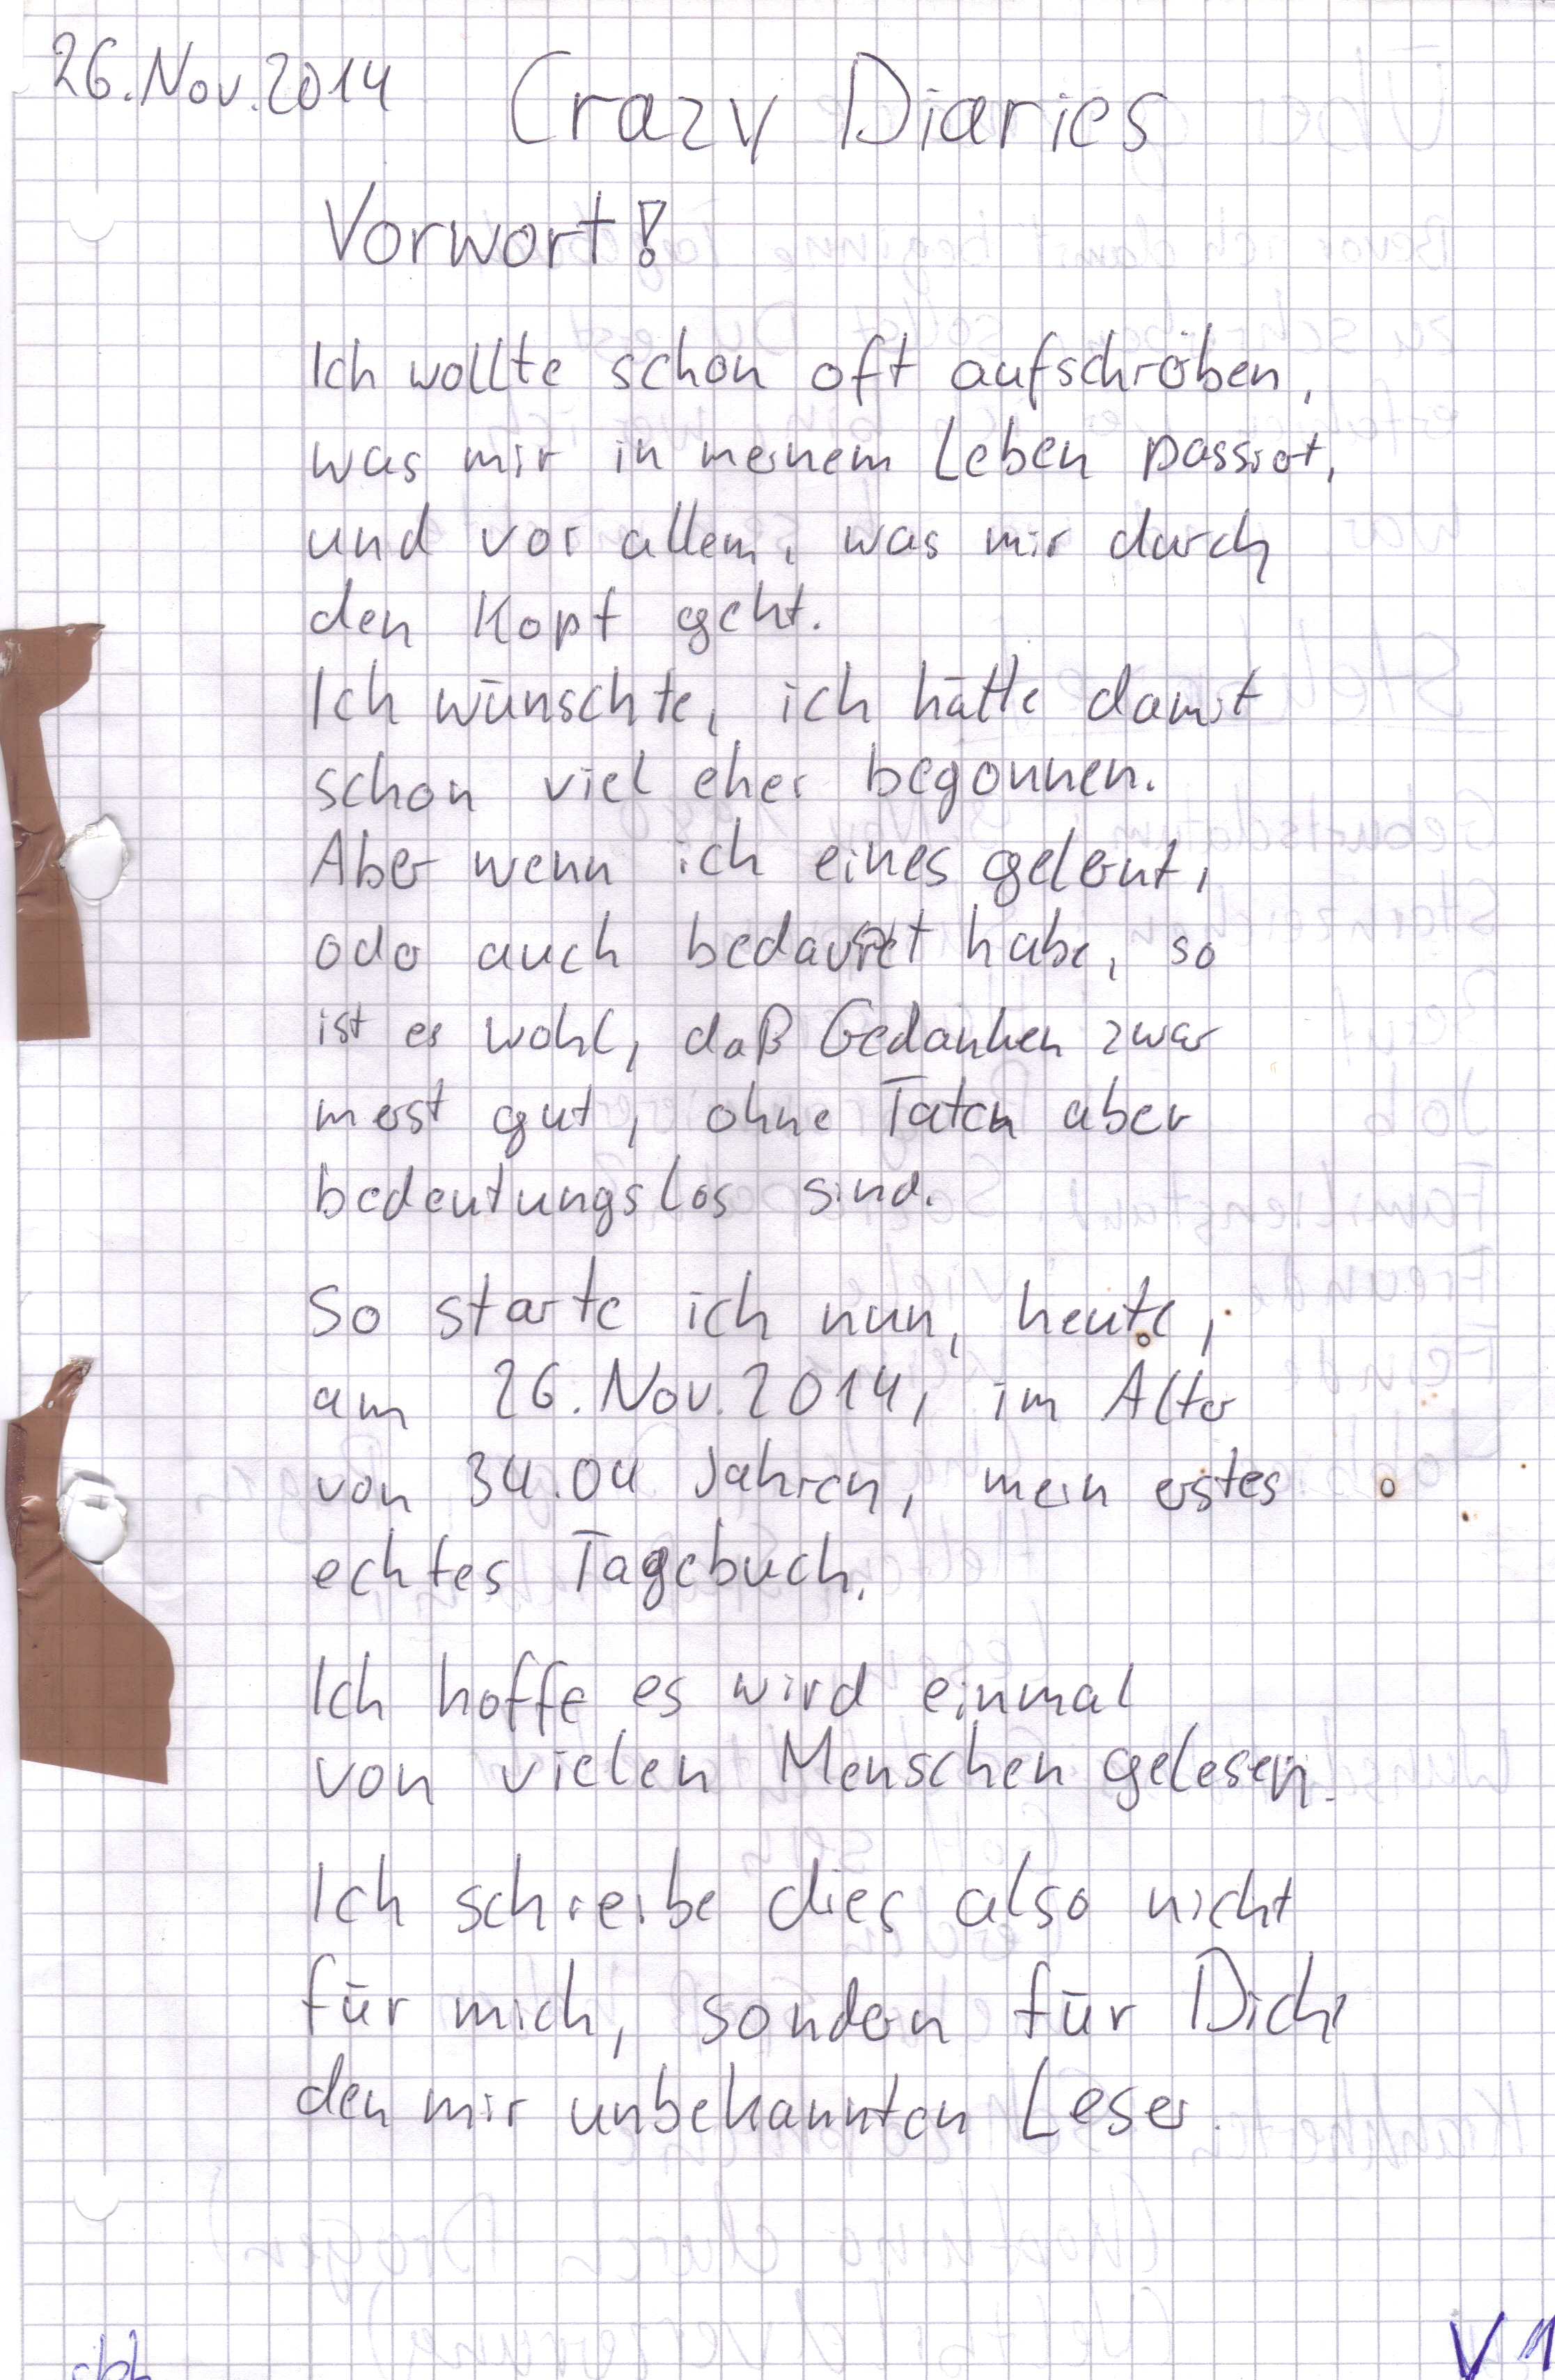 26.Nov.2014 Crazy Diaries
Vorwort!
Ich wollte schon oft aufschreiben,
was mir in meinem Leben passiert,
und vor allem, was mir durch
den Kopf geht.
Ich wünschte, ich hätte damit
schon viel eher begonnen.
Aber wenn ich eines gelernt,
oder auch bedauert habe, so
ist es wohl, daß Gedanken zwar
meist gut, ohne Taten aber
bedeutungslos sind.
So starte ich nun, heute,
am 26.Nov.2014, im Alter
von 34.04 Jahren, mein erstes
echtes Tagebuch.
Ich hoffe es wird einmal
von vielen Menschen gelesen.
Ich schreibe dies also nicht
für mich, sondern für Dich,
den mir unbekannten Leser.
V1